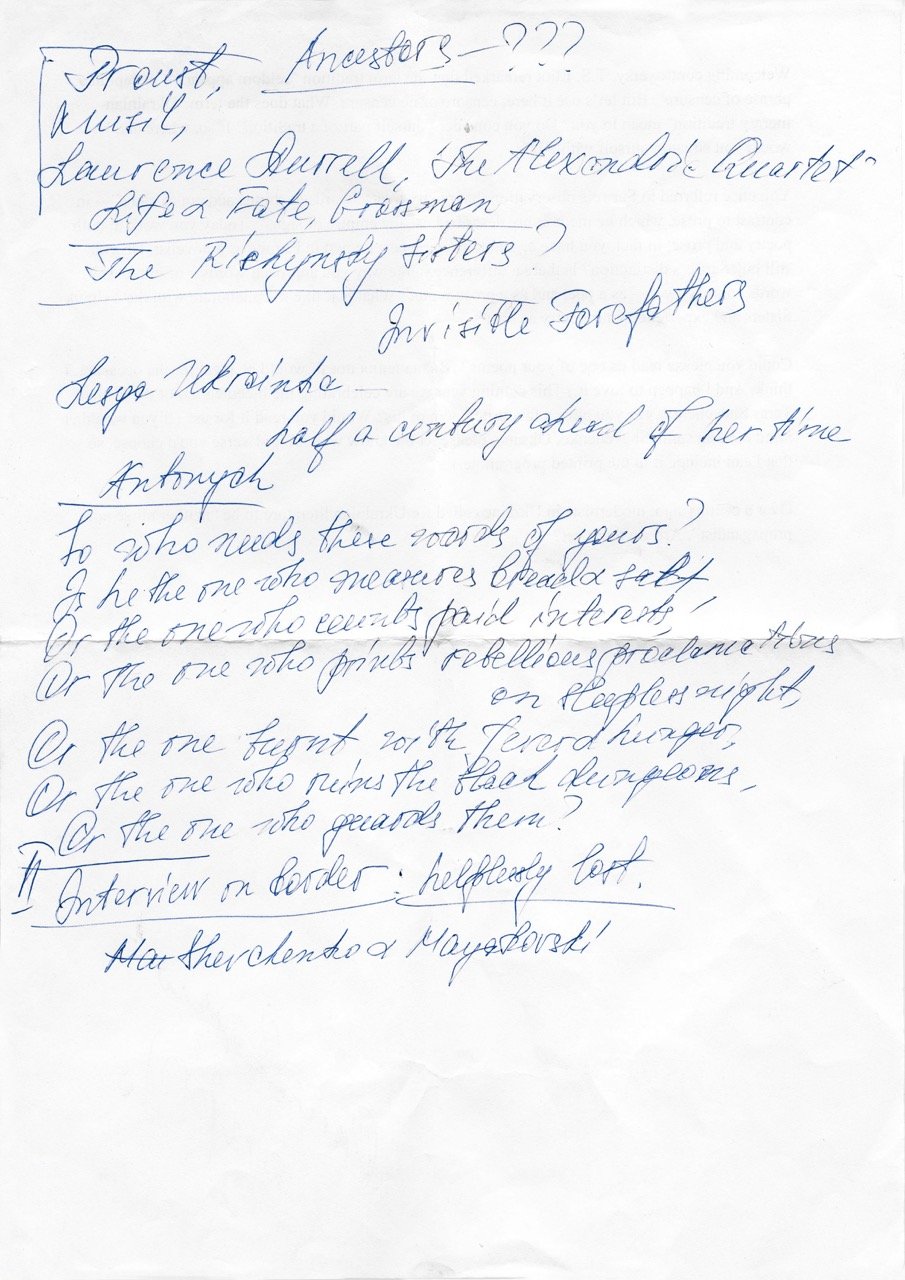 Ancestors – ???
Proust,
Musil,
Laurence Durrell, "The Alexandria Quartet"
Life & Fate, Grossman
The Richynsky Sisters?
Invisible Forefathers
Lesya Ukrainka —
half a century ahead of her time
Antonych
So who needs these words of yours?
Is he the one who measures bread & salt
Or the one who counts paid interests,
Or the one who prints rebellious proclamations
on sleepless night,
Or the one burnt with fever & hunger,
Or the one who ruins the black dungeons,
Or the one who guards them?
II
Interview on border: helplessly lost.
Shevchenko & Mayakovski